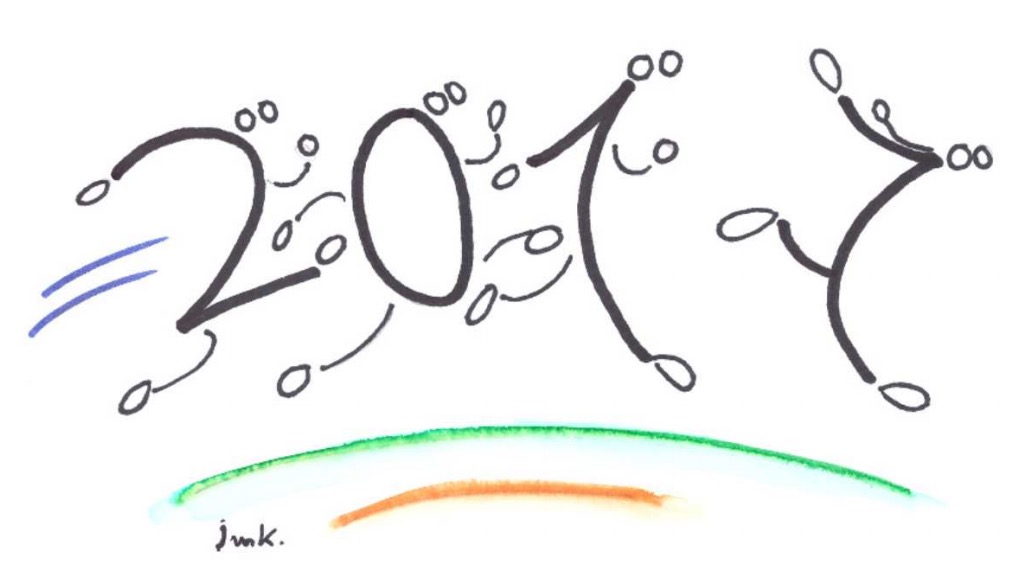 2017
jmk.